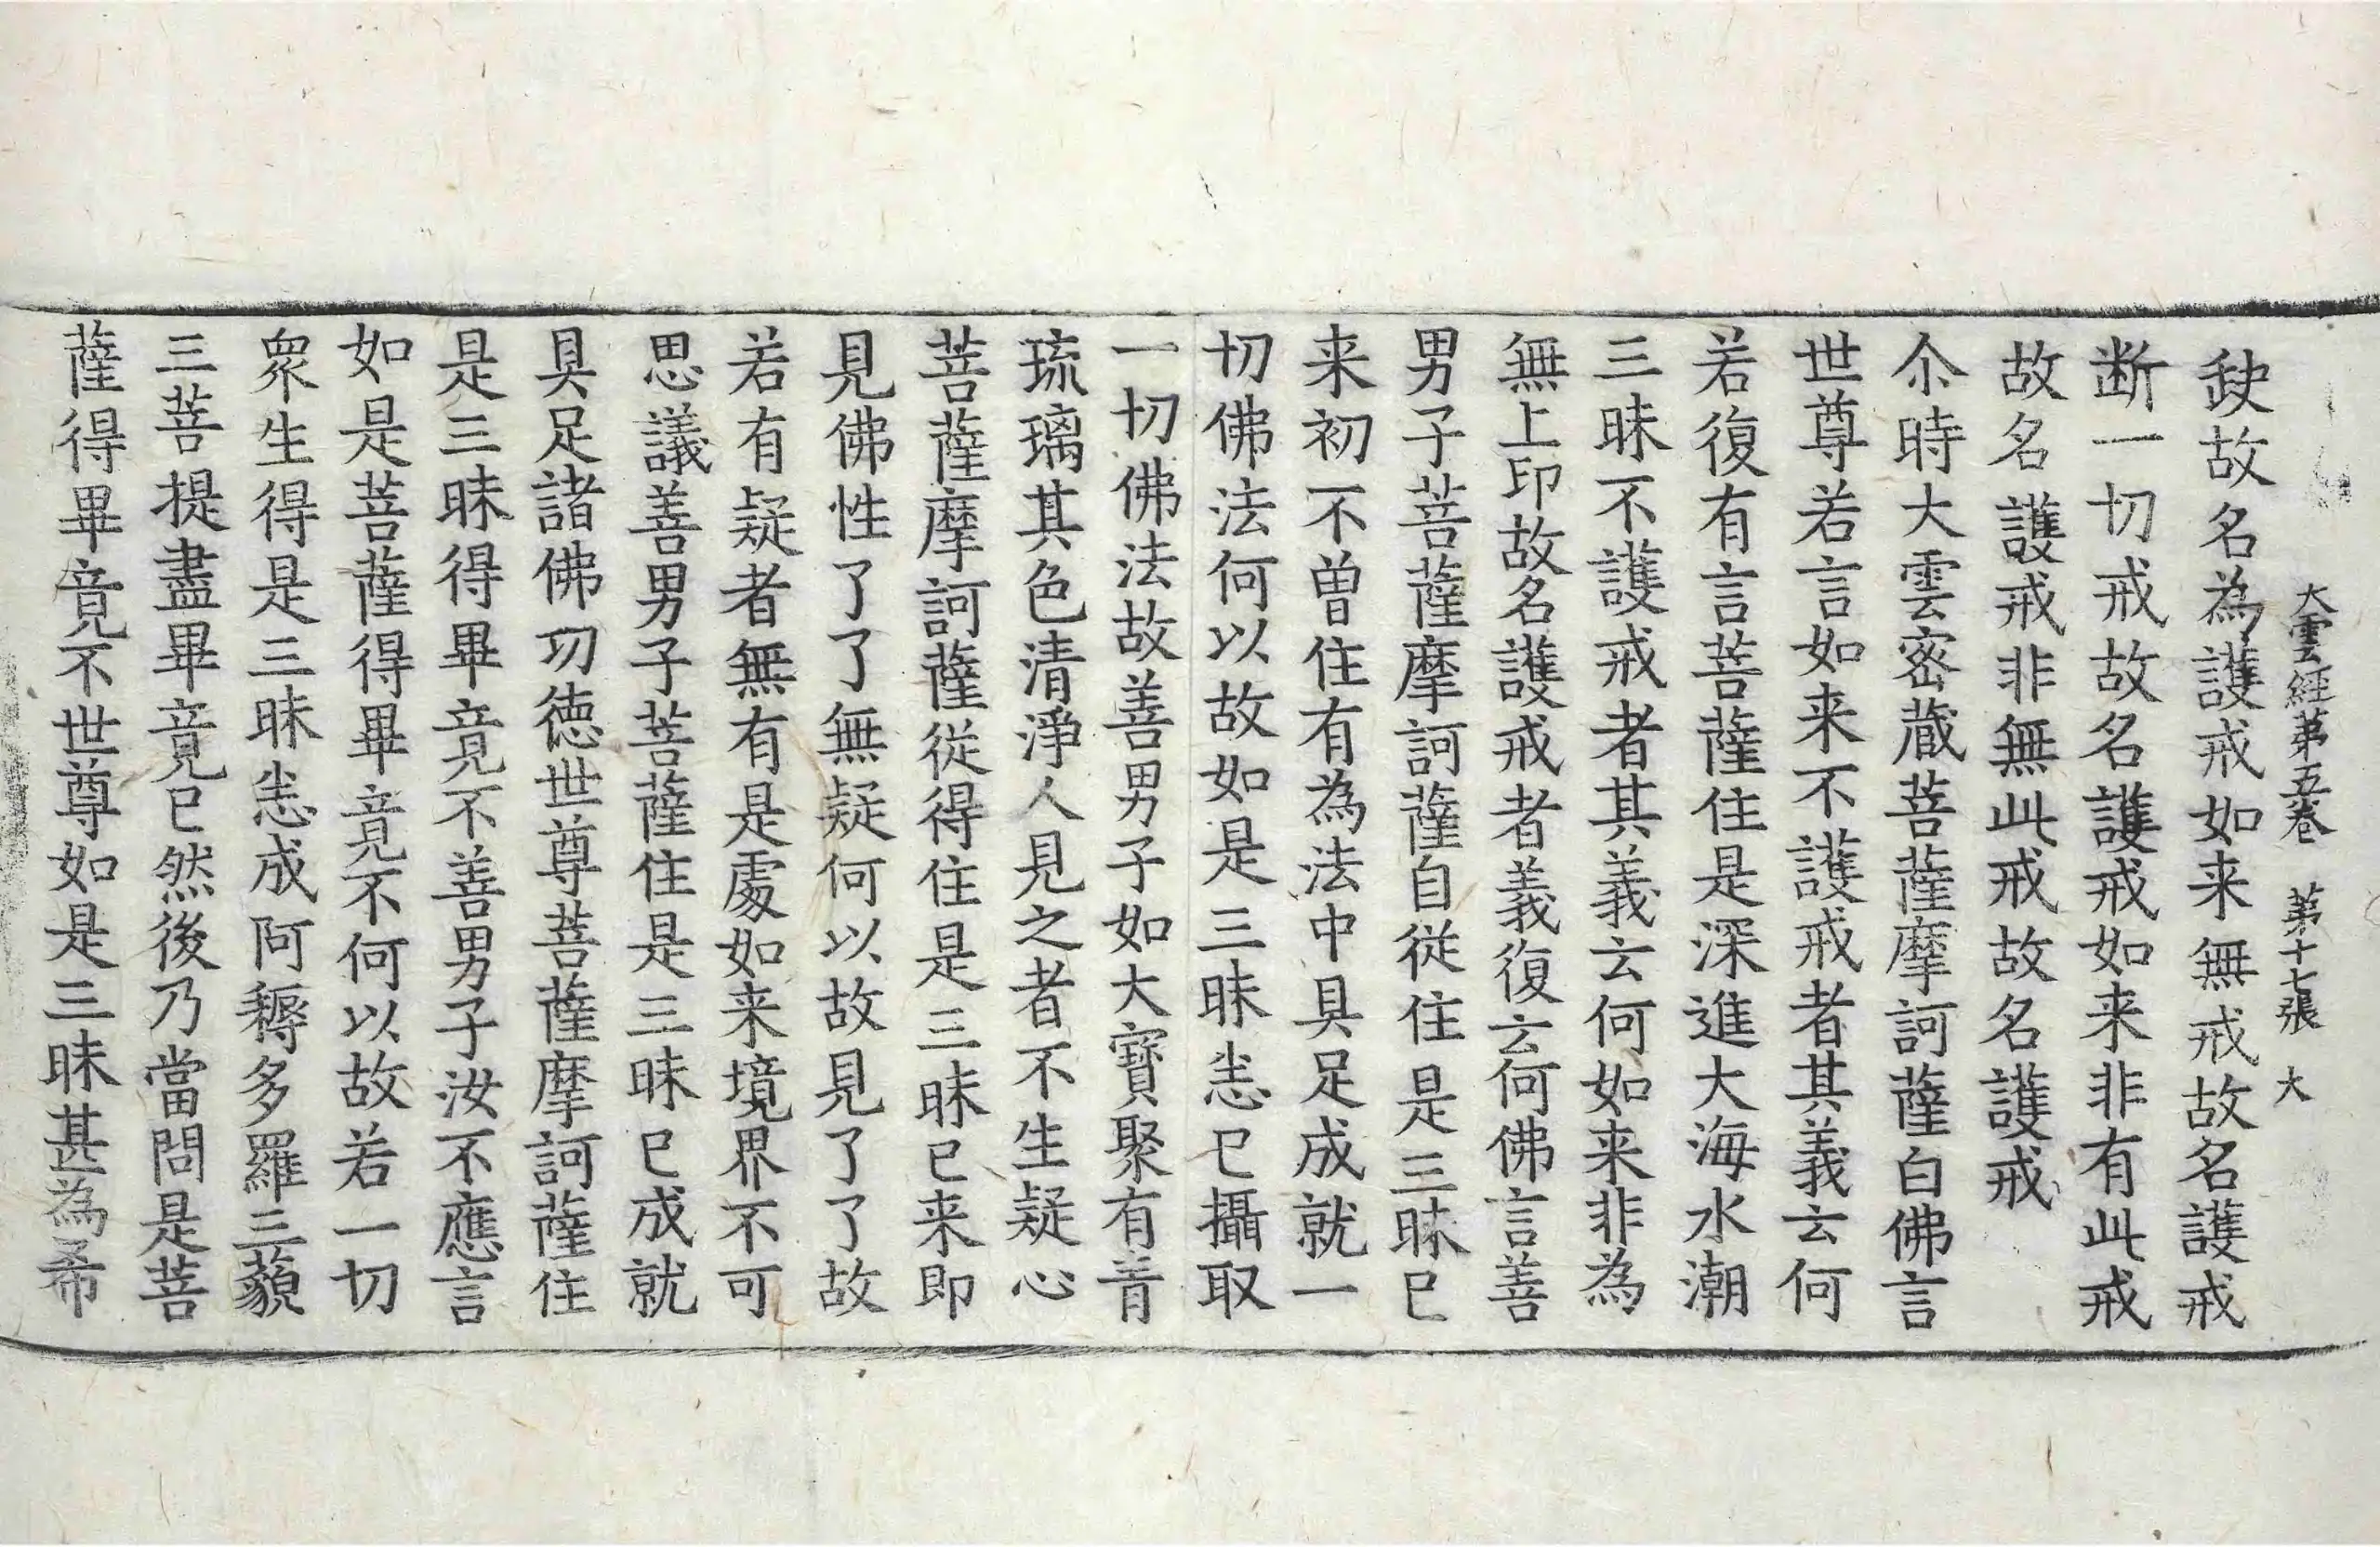 大雲經第五卷　第十七張　大
缺故名為護戒如来無戒故名護戒
断一切戒故名護戒如来非有此戒
故名護戒非無此戒故名護戒
尒時大雲密蔵菩薩摩訶薩白佛言
世尊若言如来不護戒者其義云何
若復有言菩薩住是深進大海水潮
三昧不護戒者其義云何如来非為
無上印故名護戒者義復云何佛言善
男子菩薩摩訶薩自從住是三昧已
来初不曽住有為法中具足成就一
切佛法何以故如是三昧悉已攝取
一切佛法故善男子如大寶聚有青
琉璃其色清淨人見之者不生疑心
菩薩摩訶薩從得住是三昧已来即
見佛性了了無疑何以故見了了故
若有疑者無有是處如来境界不可
思議善男子菩薩住是三昧已成就
具足諸佛功徳世尊菩薩摩訶薩住
是三昧得畢竟不善男子汝不應言
如是菩薩得畢竟不何以故若一切
衆生得是三昧悉成阿耨多羅三藐
三菩提盡畢竟已然後乃當問是菩
薩得畢竟不世尊如是三昧甚為希